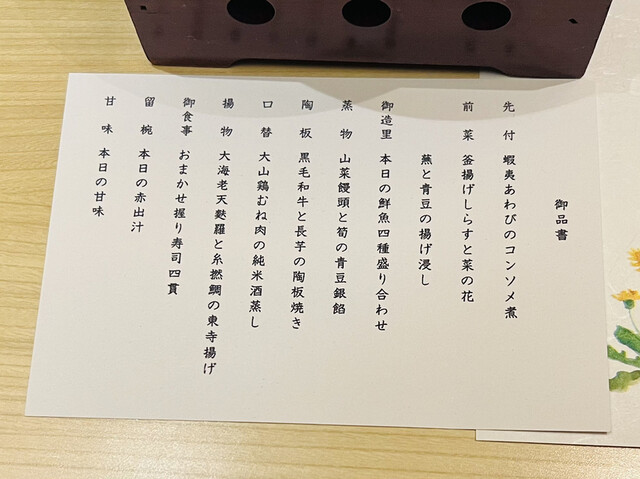 御品書
先付 蝦夷あわびのコンソメ煮
前菜 釜揚げしらすと菜の花
蕪と青豆の揚げ浸し
御造里 本日の鮮魚四種盛り合わせ
蒸物 山菜饅頭と筍の青豆銀餡
陶板 黒毛和牛と長芋の陶板焼き
口替 大山鶏むね肉の純米酒蒸し
揚物 大海老天麩羅と糸撚鯛の東寺揚げ
御食事 おまかせ握り寿司四貫
留椀 本日の赤出汁
甘味 本日の甘味